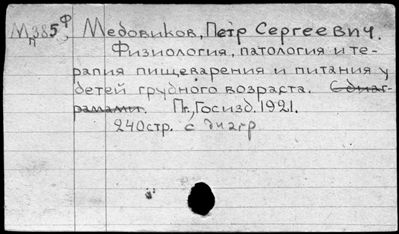 Мп385Ф, Медовиков, Петр Сергеевич.
Физиология, патология и те-
рапия пищеварения и питания у
детей грудного возраста. С диаг-
рамами. Пг., Госизд. 1921.
240стр. с диагр